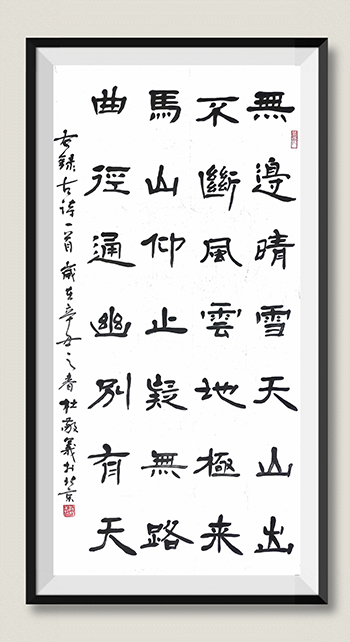 無邊晴雪天山出
不斷風雲地極来
馬山仰止疑無路
曲徑通幽別有天
右録古诗一首歲在辛丑之春杜敬義於北京